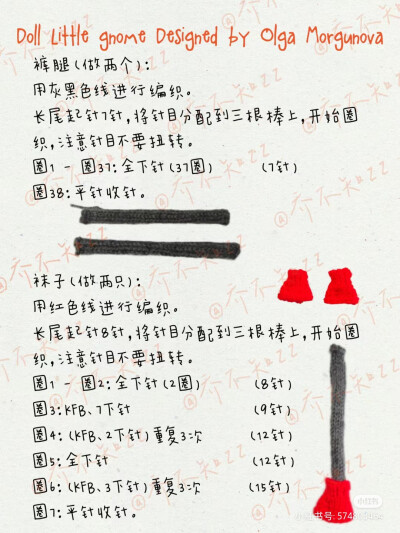 Doll Little gnome Designed by Olga Morgunova
裤腿(做两个):
用灰黑色线进行编织。
长尾起针7针,将针目分配到三根棒上,开始圈
织,注意针目不要扭转。
圈1 - 圈37:全下针(37圈) (7针)
圈38:平针收针。
袜子(做两只):
用红色线进行编织。
长尾起针8针,将针目分配到三根棒上,开始圈
织,注意针目不要扭转。
圈1 - 圈2:全下针(2圈) (8针)
圈3:KFB、7下针 (9针)
圈4:(KFB、2下针)重复3次 (12针)
圈5:全下针 (12针)
圈6:(KFB、3下针)重复3次 (15针)
圈7:平针收针。
小红书